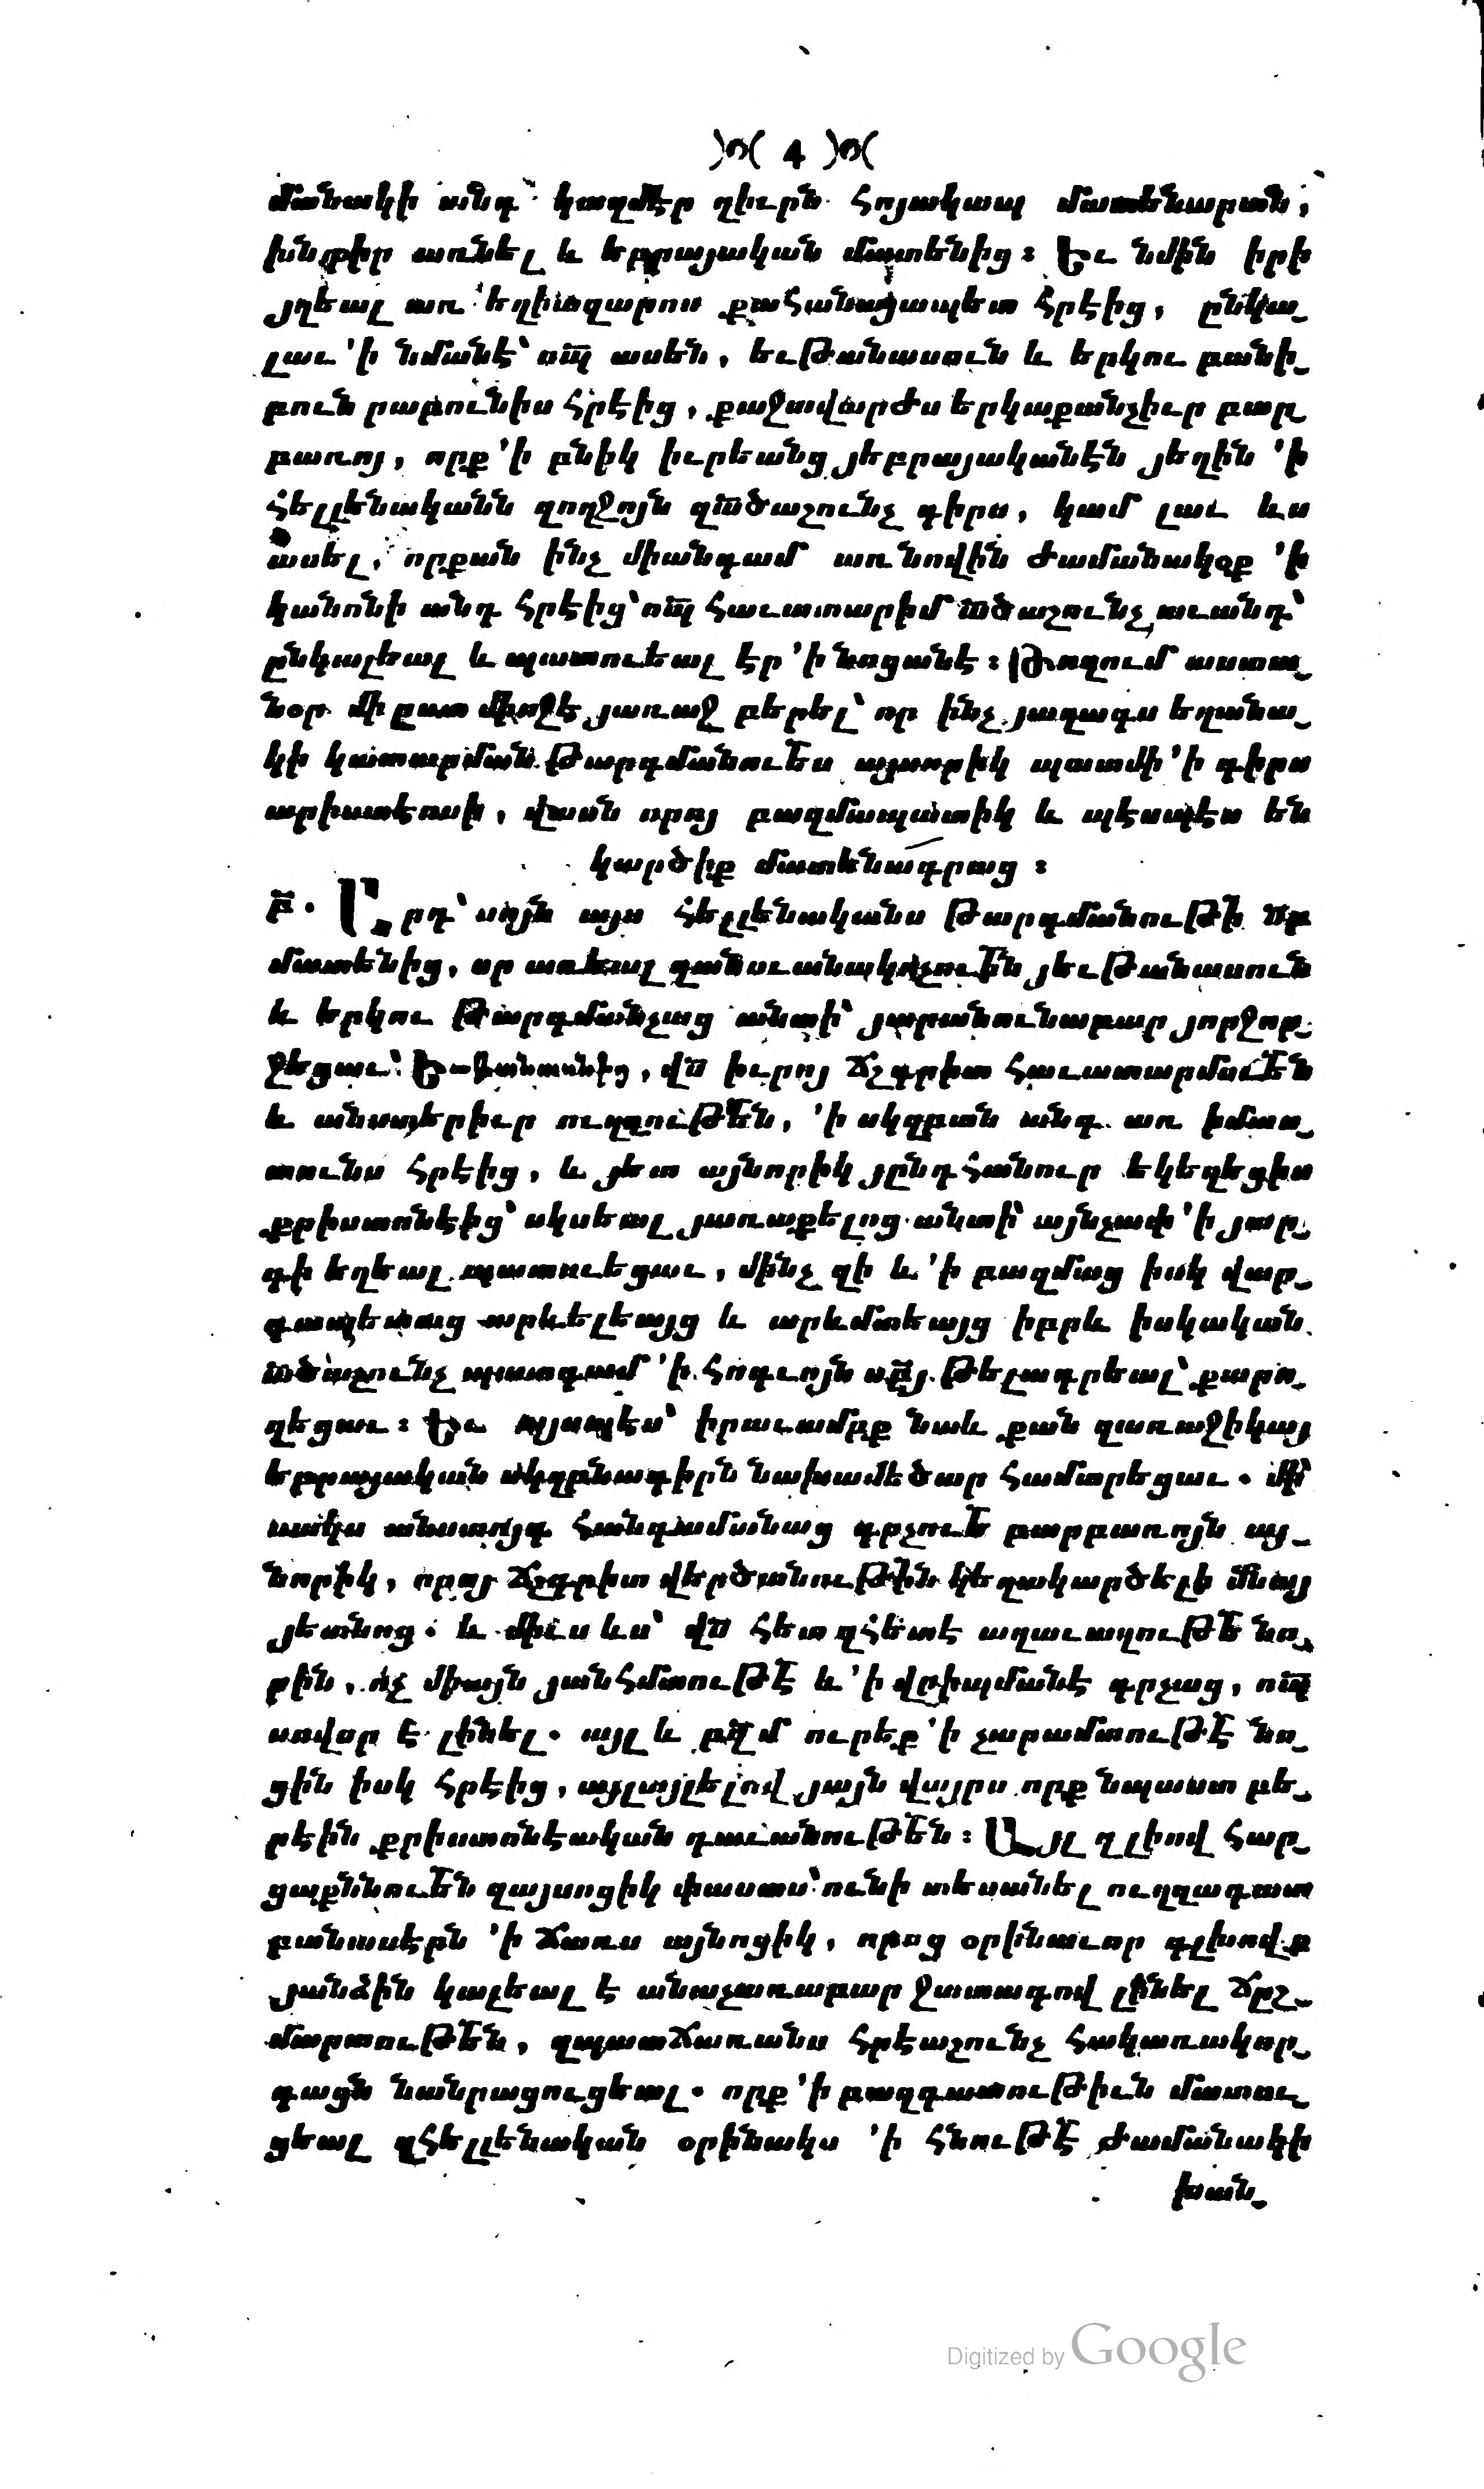 )o( 4 )o(
մանակի անդ կազմէր զիւրն հոյակապ մատենարան,
խնդիր առնել և եբրայական մատենից։ Եւ նմին իրի
յղեալ առ եղիազարոս քահանայապետ հրէից, ընկա֊
լաւ ՚ի նմանէ՝ ո՞պ ասեն, եւթանասուն և երկու բանի֊
բուն րաբունիս հրէից, քաջավարժս երկաքանչիւր բար֊
բառոյ, որք ՚ի բնիկ իւրեանց յեբրայականէն յեղին ՚ի
հելլենականն զողջոյն զա՟ծաշունչ գիրս, կամ լաւ ևս
ասել, որքան ինչ միանգամ առ նովին ժամանակօք ՚ի
կանոնի անդ հրէից՝ ո՟պ հաւատարիմ ա՟ծաշունչ աւանդ՝
ընկալեալ և պատուեալ էր ՚ի նոցանէ։ Թողում աստա֊
նօր մի ըստ միոջէ յառաջ բերել՝ որ ինչ յաղագս եղանա֊
կի կատարման թարգմանուե՟ս այսորիկ պատմի ՚ի գիրս
արիստէոսի, վասն որոյ բազմապատիկ և պէսպէս են
կարծիք մատենագրաց։
բ. Արդ՝ սոյն այս հելլենականս թարգմանութի՟ ս՟բ
մատենից, որ առեալ զանուանակոչուե՟ն յեւթանասուն
և երկու թարգմանչաց անտի՝ յարանունաբար յորջոր֊
ջեցաւ՝ Եւթանասնից, վ՟ս իւրոյ ճշգրիտ հաւատարմուե՟ն
և անստերիւր ուղղութե՟ն, ՚ի սկզբան անդ առ իմաս֊
տունս հրէից, և յետ այնորիկ յընդհանուր եկեղեցիս
քրիստոնէից՝ սկսեալ յառաքելոց անտի՝ այնչափ ՚ի յար֊
գի եղեալ պատուեցաւ, մինչ զի և ՚ի բազմաց իսկ վար֊
դապետաց արևելեայց և արևմտեայց իբրև իսկական
ա՟ծաշունչ պատգամ ՚ի հոգւոյն ս՟բյ թելադրեալ՝ քարո֊
զեցաւ։ Եւ այսպէս՝ իրաւամբք նաև քան զառաջիկայ
եբրայական սկզբնագիրն նախամեծար համարեցաւ. մի՝
սակս անստոյգ հանգամանաց գրչուե՟ բարբառոյն այ֊
նորիկ, որոյ ճշգրիտ վերծանութի՟ն կեղակարծելի մնայ
յետնոց. և միւս ևս՝ վ՟ս հետզհետէ աղաւաղութե՟ նո֊
րին, ոչ միայն յանհմտութէ՟ և ՚ի վրիպմանէ գրչաց, ո՟պ
սովոր է լինել. այլ և բզ՟մ ուրեք ՚ի չարամտութէ՟ նո֊
ցին իսկ հրէից, այլայլելով յայն վայրս որք նպաստ բե֊
րէին քրիստոնէական դաւանութե՟ն։ Այլ զլիով հար֊
ցաքննուե՟ն զայսոցիկ փաստս՝ ունի տեսանել ուղղադատ
բանասէրն ՚ի ճառս այնոցիկ, որոց օրինաւոր գլխովք
յանձին կալեալ է անաչառաբար ջատագով լինել ճըշ֊
մարտութե՟ն, զպատճառանս հրէաշունչ հակառակոր֊
դացն նանրացուցեալ. որք ՚ի բազդատութիւն մատու֊
ցեալ զհելլենական օրինակս ՚ի հնութէ՟ ժամանակի
խան֊
Digitized by Google